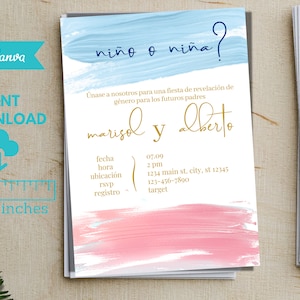 anva
niño o niña?
NT
WNLOAD
Únase a nosotros para una fiesta de revelación de
género para los futuros padres
marisol y alberto
fecha 07.09
hora 2 pm
ubicación 1234 main st, city, st 12345
rsvp 123-456-7890
registro target
inches